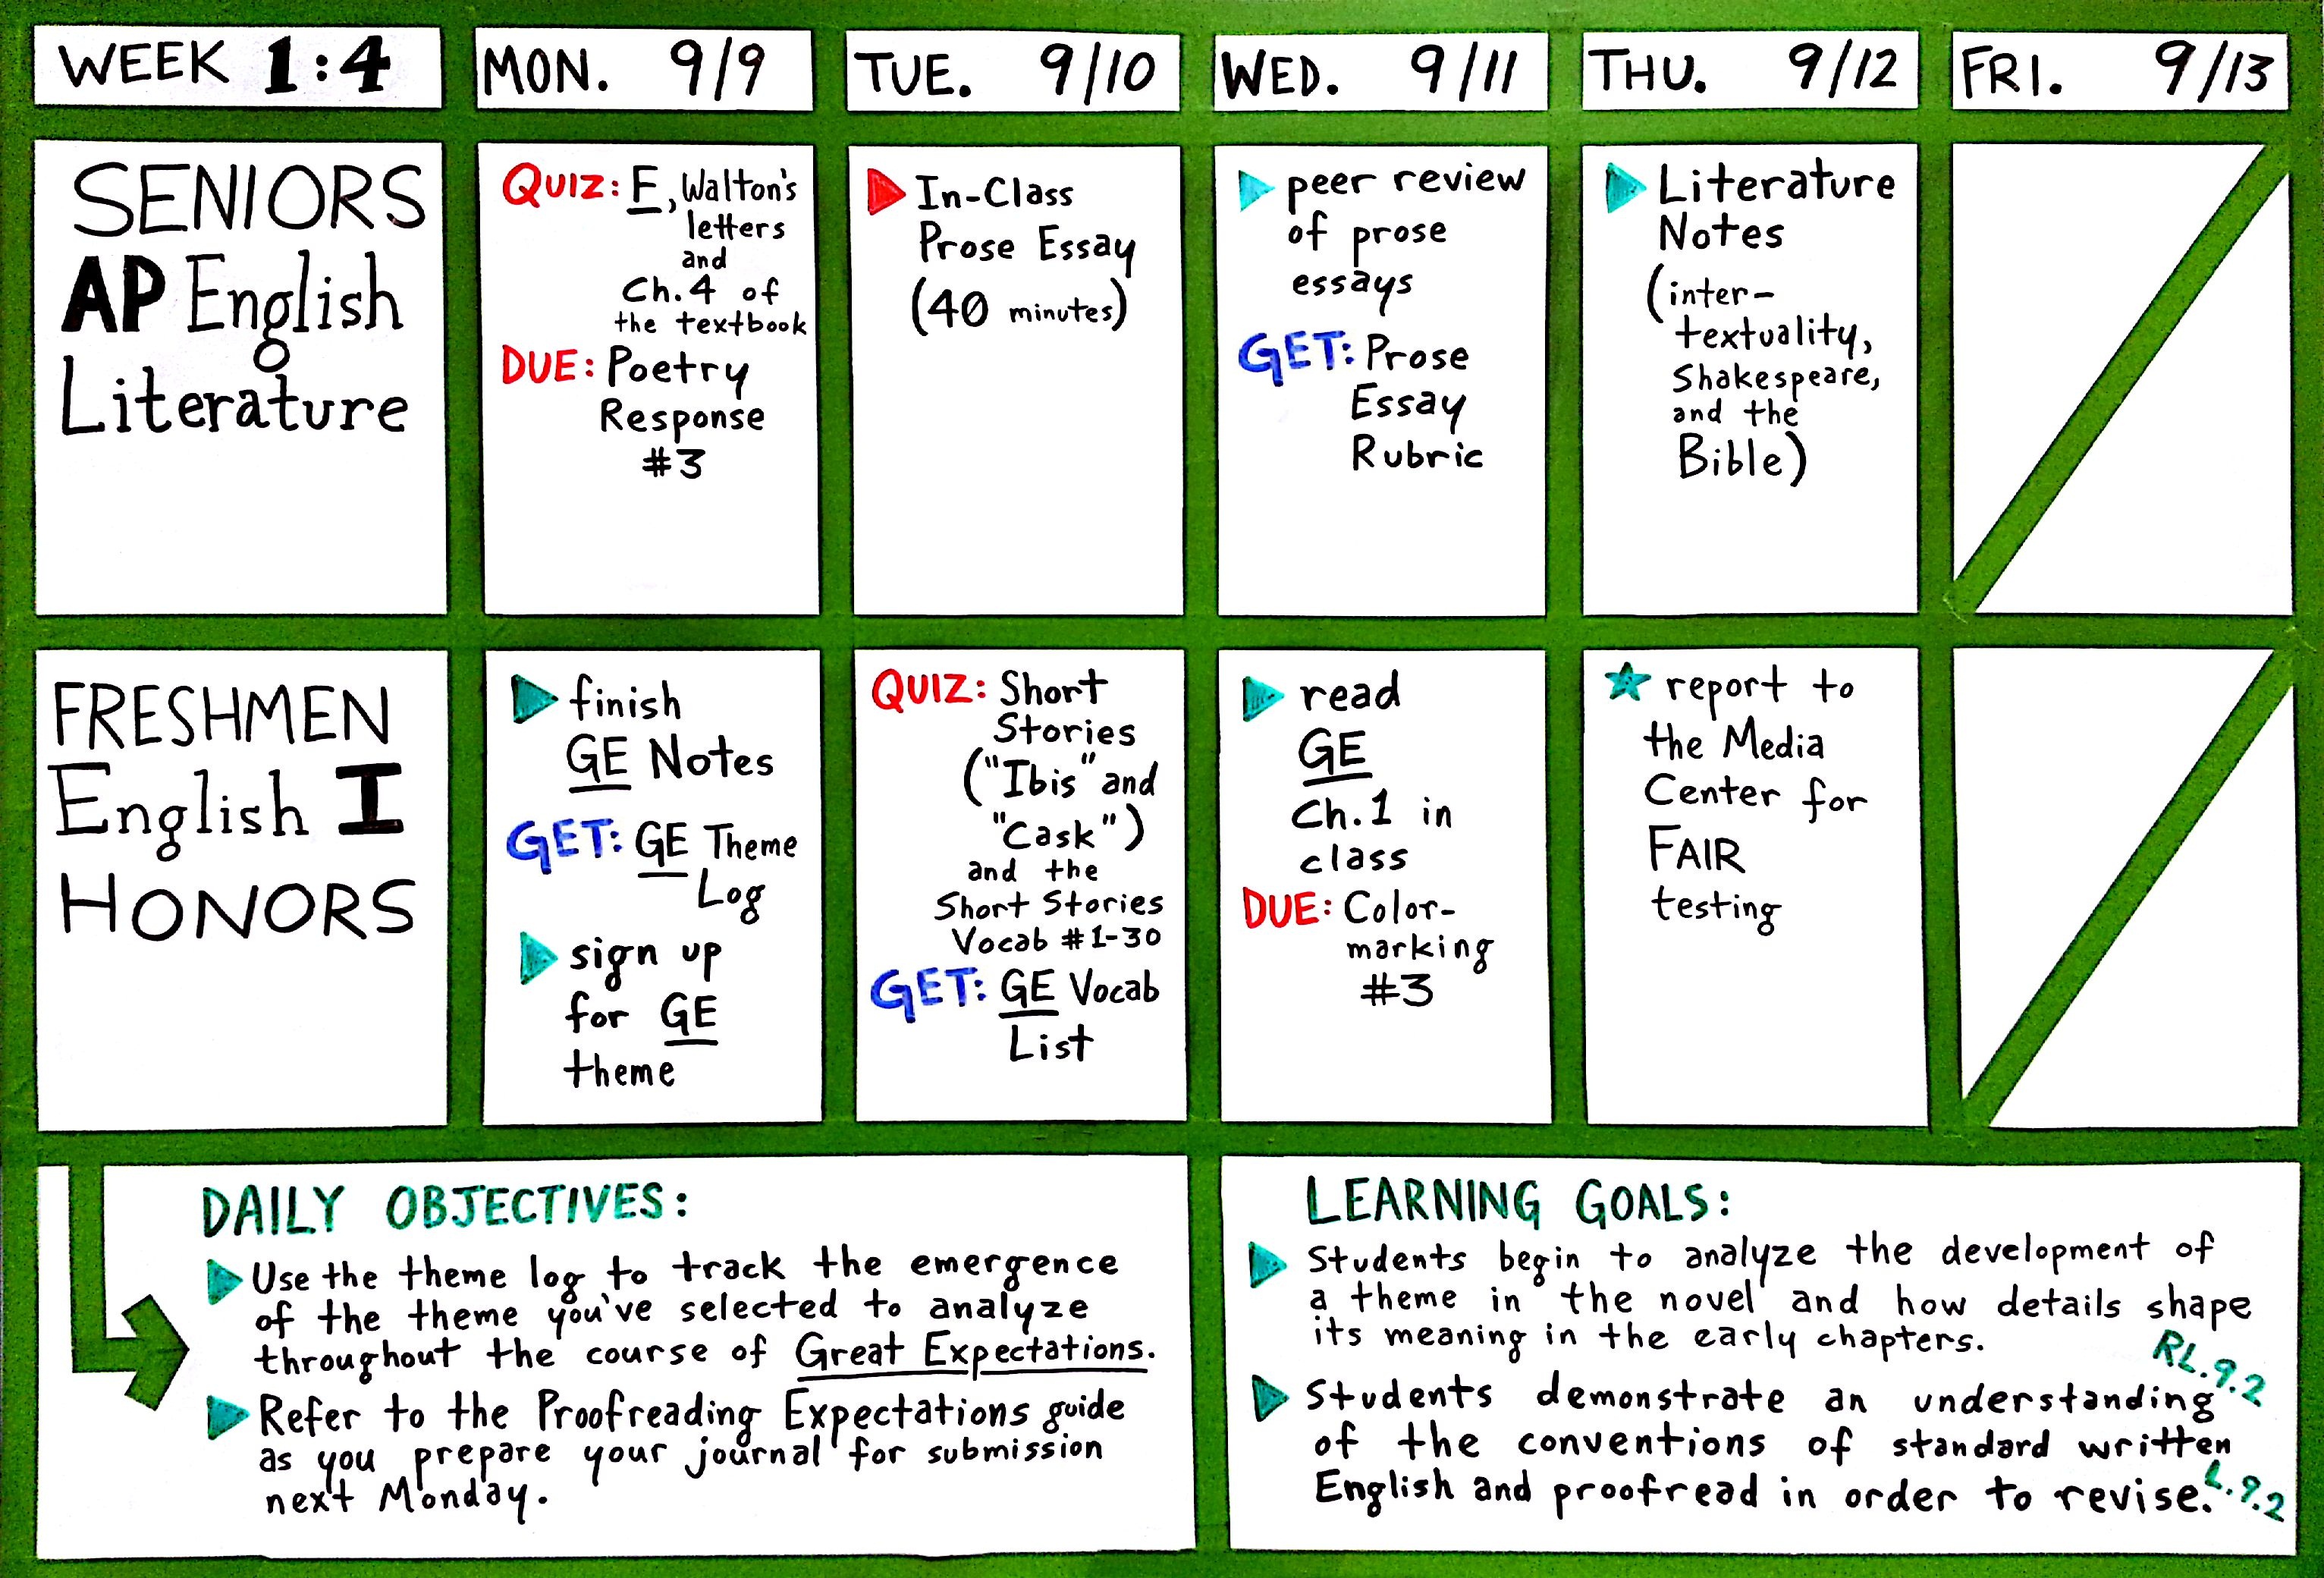 WEEK 1:4
MON. 9/9
TUE. 9/10
WED. 9/11
THU. 9/12
FRI. 9/13
SENIORS
AP English
Literature
QUIZ: F, Walton's
letters
and
Ch. 4 of
the textbook
DUE: Poetry
Response
#3
In-Class
Prose Essay
(40 minutes)
peer review
of prose
essays
GET: Prose
Essay
Rubric
Literature
Notes
(inter-
textuality,
Shakespeare,
and the
Bible)
FRESHMEN
English I
HONORS
finish
GE Notes
GET: GE Theme
Log
sign up
for GE
theme
QUIZ: Short
Stories
("Ibis" and
"Cask")
and the
Short Stories
Vocab #1-30
GET: GE Vocab
List
read
GE
Ch. 1 in
class
DUE: Color-
marking
#3
report to
the Media
Center for
FAIR
testing
DAILY OBJECTIVES:
Use the theme log to track the emergence
of the theme you've selected to analyze
throughout the course of Great Expectations.
Refer to the Proofreading Expectations guide
as you prepare your journal for submission
next Monday.
LEARNING GOALS:
Students begin to analyze the development of
a theme in the novel and how details shape
its meaning in the early chapters.
RL.9.2
Students demonstrate an understanding
of the conventions of standard written
English and proofread in order to revise.
L.9.2